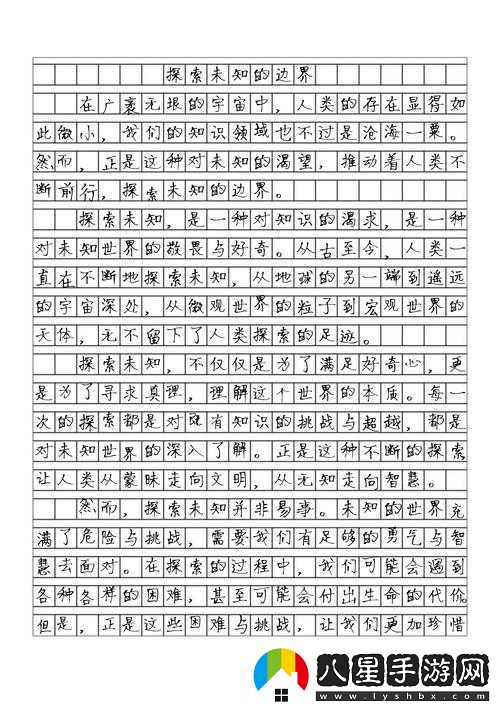 探索未知的边界
在广袤无垠的宇宙中，人类的存在显得如
此微小，我们的知识领域也不过是沧海一粟。
然而，正是这种对未知的渴望，推动着人类不
断前行，探索未知的边界。
探索未知，是一种对知识的渴求，是一种
对未知世界的敬畏与好奇。从古至今，人类一
直在不断地探索未知，从地球的另一端到遥远
的宇宙深处，从微观世界的粒子到宏观世界的
天体，无不留下了人类探索的足迹。
探索未知，不仅仅是为了满足好奇心，更
是为了寻求真理，理解这个世界的本质。每一
次的探索都是对既有知识的挑战与超越，都是
对未知世界的深入了解。正是这种不断的探索
让人类从蒙昧走向文明，从无知走向智慧。
然而，探索未知并非易事。未知的世界充
满了危险与挑战，需要我们有足够的勇气与智
慧去面对。在探索的过程中，我们可能会遇到
各种各样的困难，甚至可能会付出生命的代价。
但是，正是这些困难与挑战，让我们更加珍惜
八星手游网
www.lyshbx.com